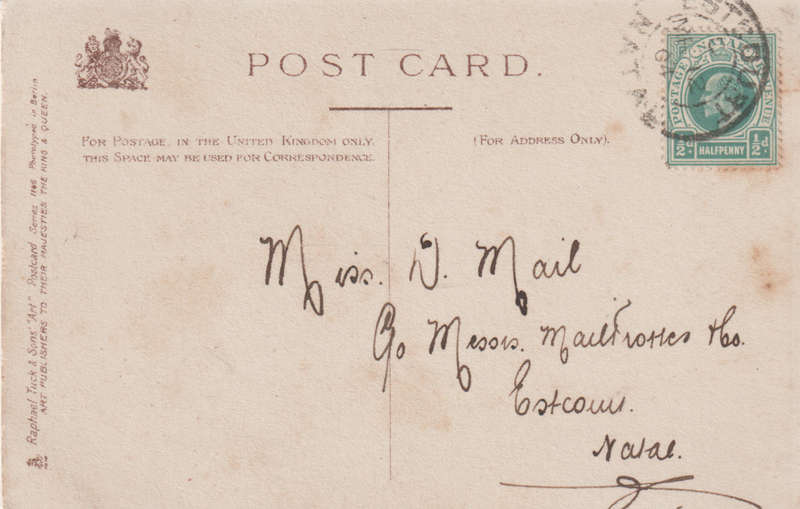 POST CARD.
FOR POSTAGE IN THE UNITED KINGDOM ONLY,
THIS SPACE MAY BE USED FOR CORRESPONDENCE.
(FOR ADDRESS ONLY).
POSTAGE NATAL REVENUE
½d HALFPENNY ½d
ESTCOURT
NATAL
Miss. D. Mail
C/o Messrs. Mail &Co.
Estcourt.
Natal.
Raphael Tuck & Sons' "Art" Postcard Series 1165 Phototyped in Berlin
ART PUBLISHERS TO THEIR MAJESTIES THE KING & QUEEN.